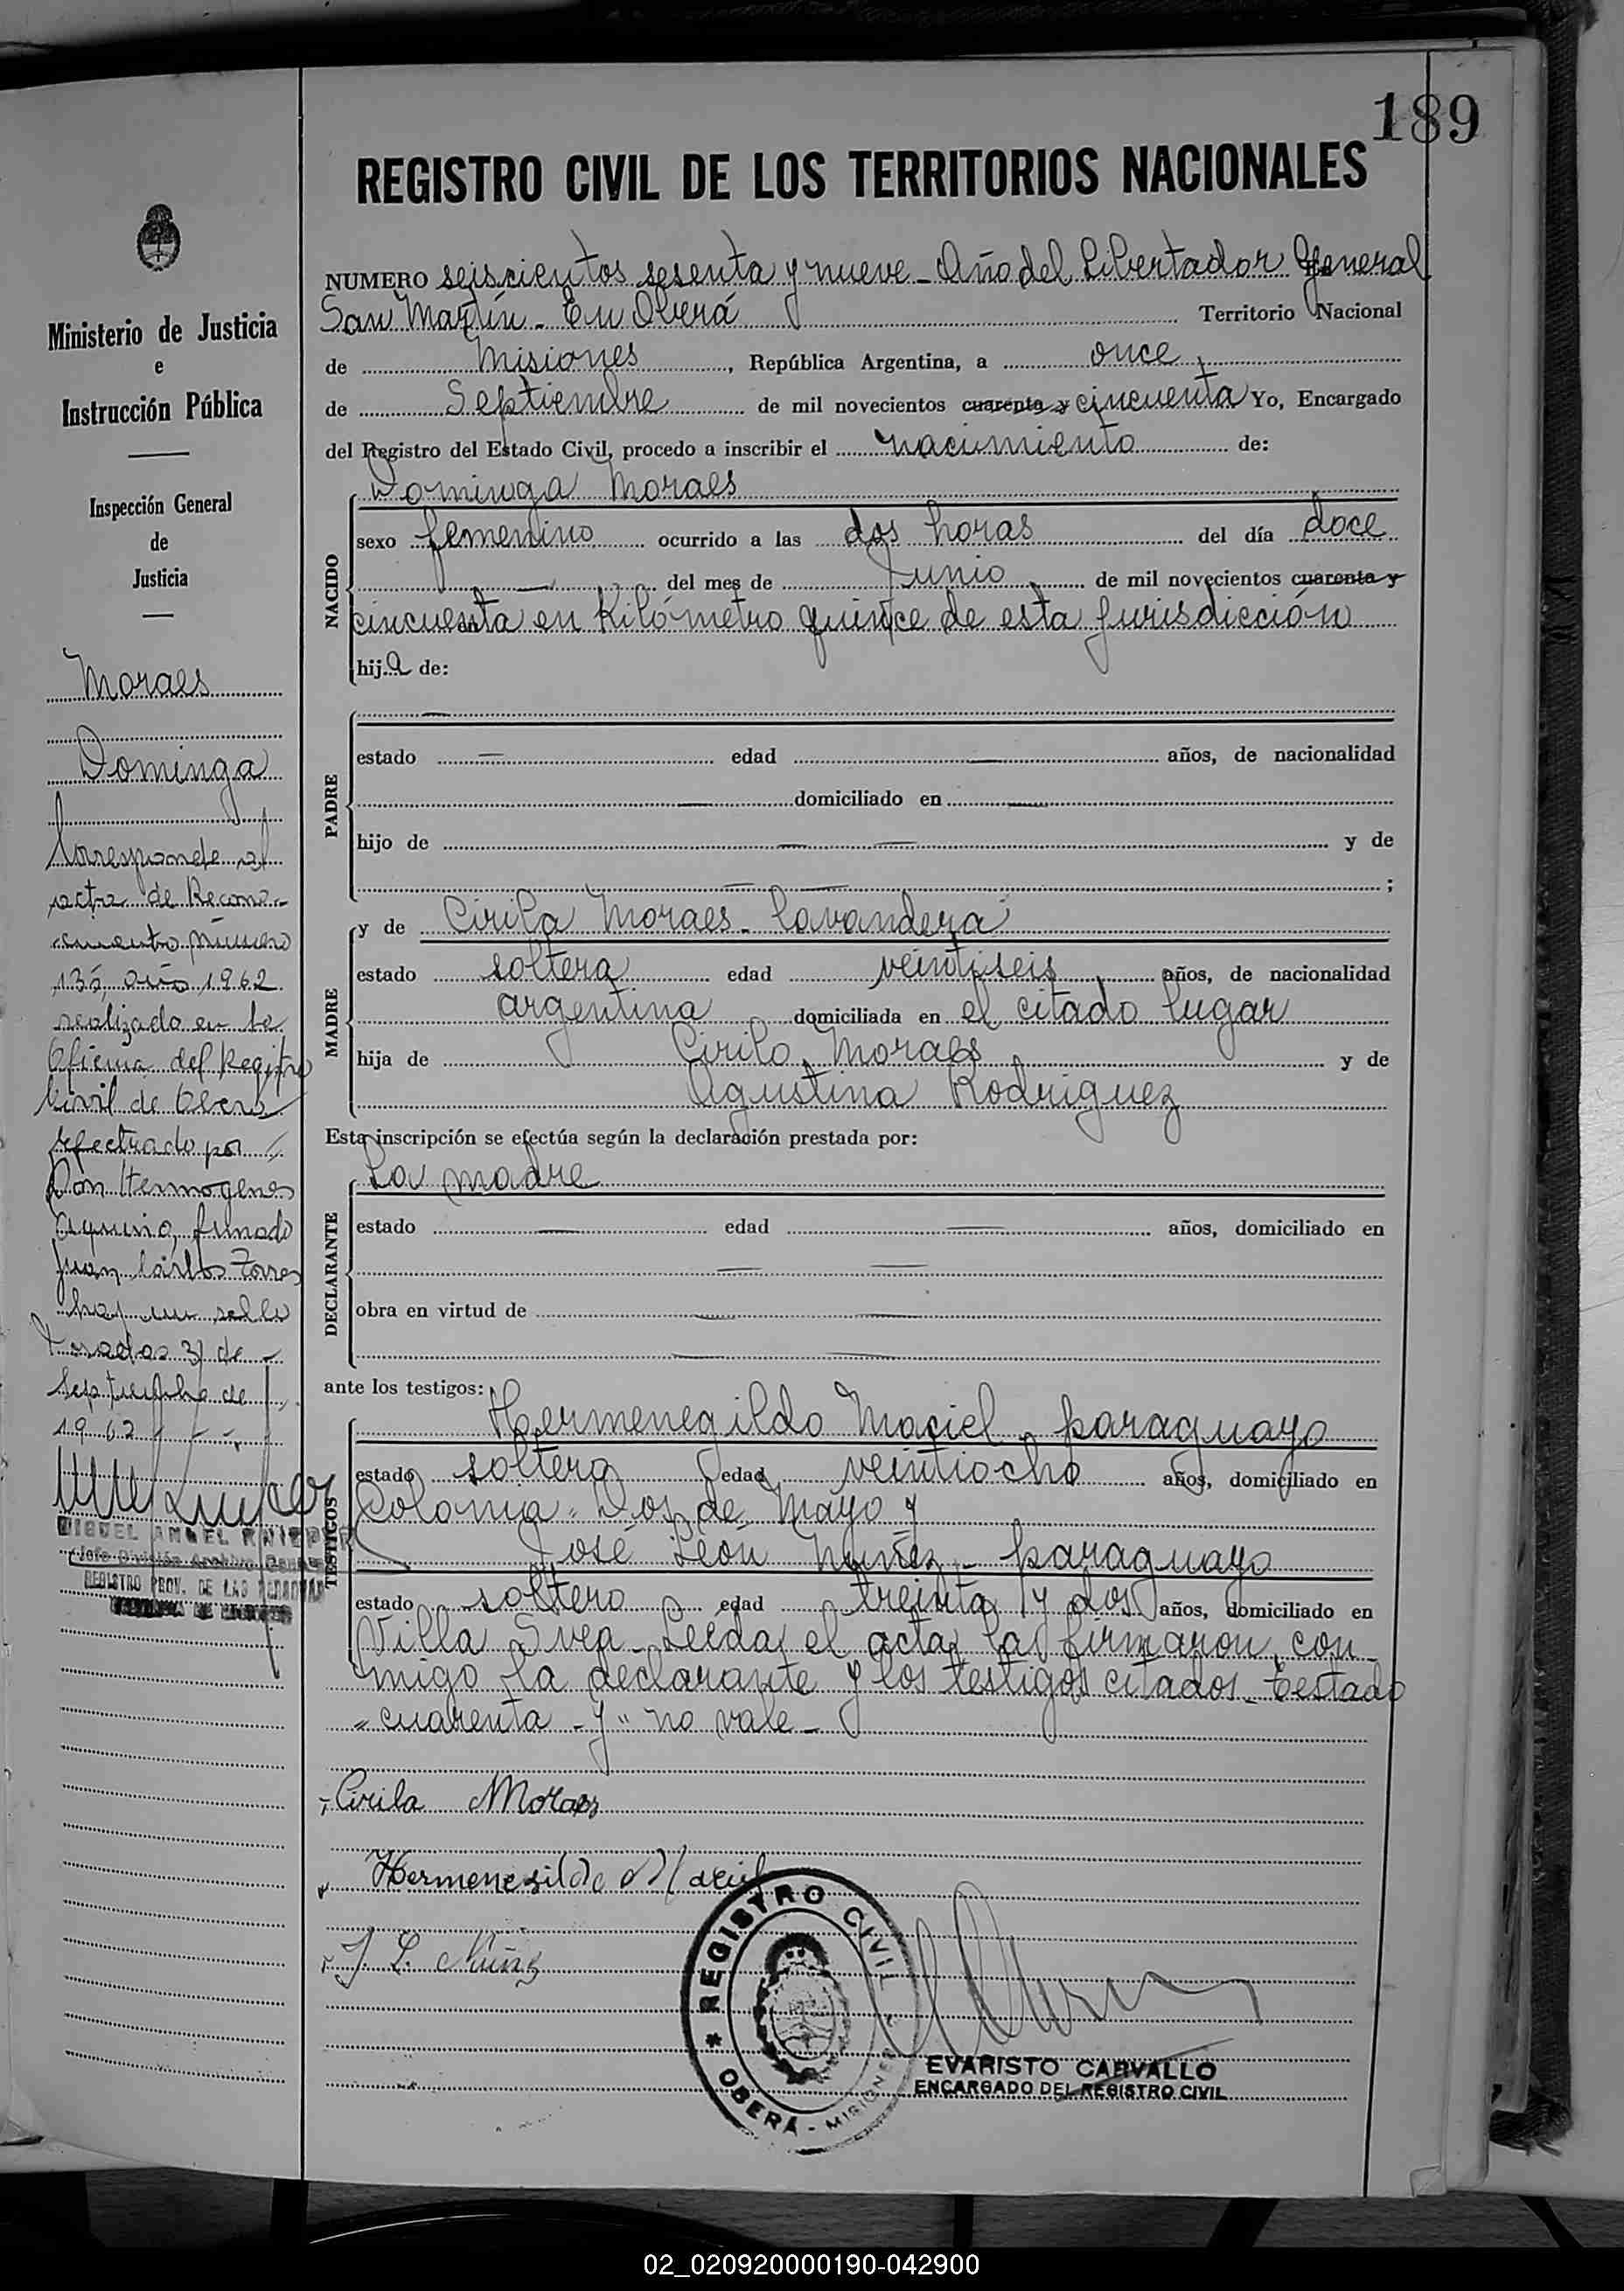 189
REGISTRO CIVIL DE LOS TERRITORIOS NACIONALES
NUMERO seiscientos sesenta y nueve - Año del Libertador General
San Martín - En Oberá Territorio Nacional
de Misiones, República Argentina, a once
de Septiembre de mil novecientos cuarenta y cincuenta Yo, Encargado
del Registro del Estado Civil, procedo a inscribir el nacimiento de:
Dominga Moraes
NACIDO
sexo femenino ocurrido a las dos horas del día doce
del mes de Junio de mil novecientos cuarenta y
cincuenta en Kilómetro quince de esta jurisdicción
hija de:
PADRE
estado edad años, de nacionalidad
domiciliado en
hijo de y de
;
MADRE
y de Cirila Moraes - lavandera
estado soltera edad veintiseis años, de nacionalidad
argentina domiciliada en el citado lugar
hija de Cirilo Moraes y de
Agustina Rodriguez
Esta inscripción se efectúa según la declaración prestada por:
La madre
DECLARANTE
estado edad años, domiciliado en
obra en virtud de
ante los testigos:
TESTIGOS
Hermenegildo Maciel, paraguayo
estado soltero edad veintiocho años, domiciliado en
Colonia "Dos de Mayo y
José León Nuñez - paraguayo
estado soltero edad treinta y dos años, domiciliado en
Villa Svea - Leída el acta, la firmaron con-
migo la declarante y los testigos citados - Testado
"cuarenta - y" no vale -
Cirila Moraes
Hermenegildo Maciel
J. L. Núñez
REGISTRO CIVIL
OBERA - MISIONES
EVARISTO CARVALLO
ENCARGADO DEL REGISTRO CIVIL
Ministerio de Justicia
e
Instrucción Pública
Inspección General
de
Justicia
Moraes
Dominga
Corresponde al
acta de Recono-
cimiento número
año 1962
realizado en la
Oficina del Registro
Civil de Oberá
efectuado por
Don Hermogenes
Aquino, firmado
Juan Carlos Torres
hay un sello
Posadas 31 de
Septiembre de
1962
MIGUEL ANGEL
Jefe División Archivo General
REGISTRO PROV. DE LAS PERSONAS
02_020920000190-042900